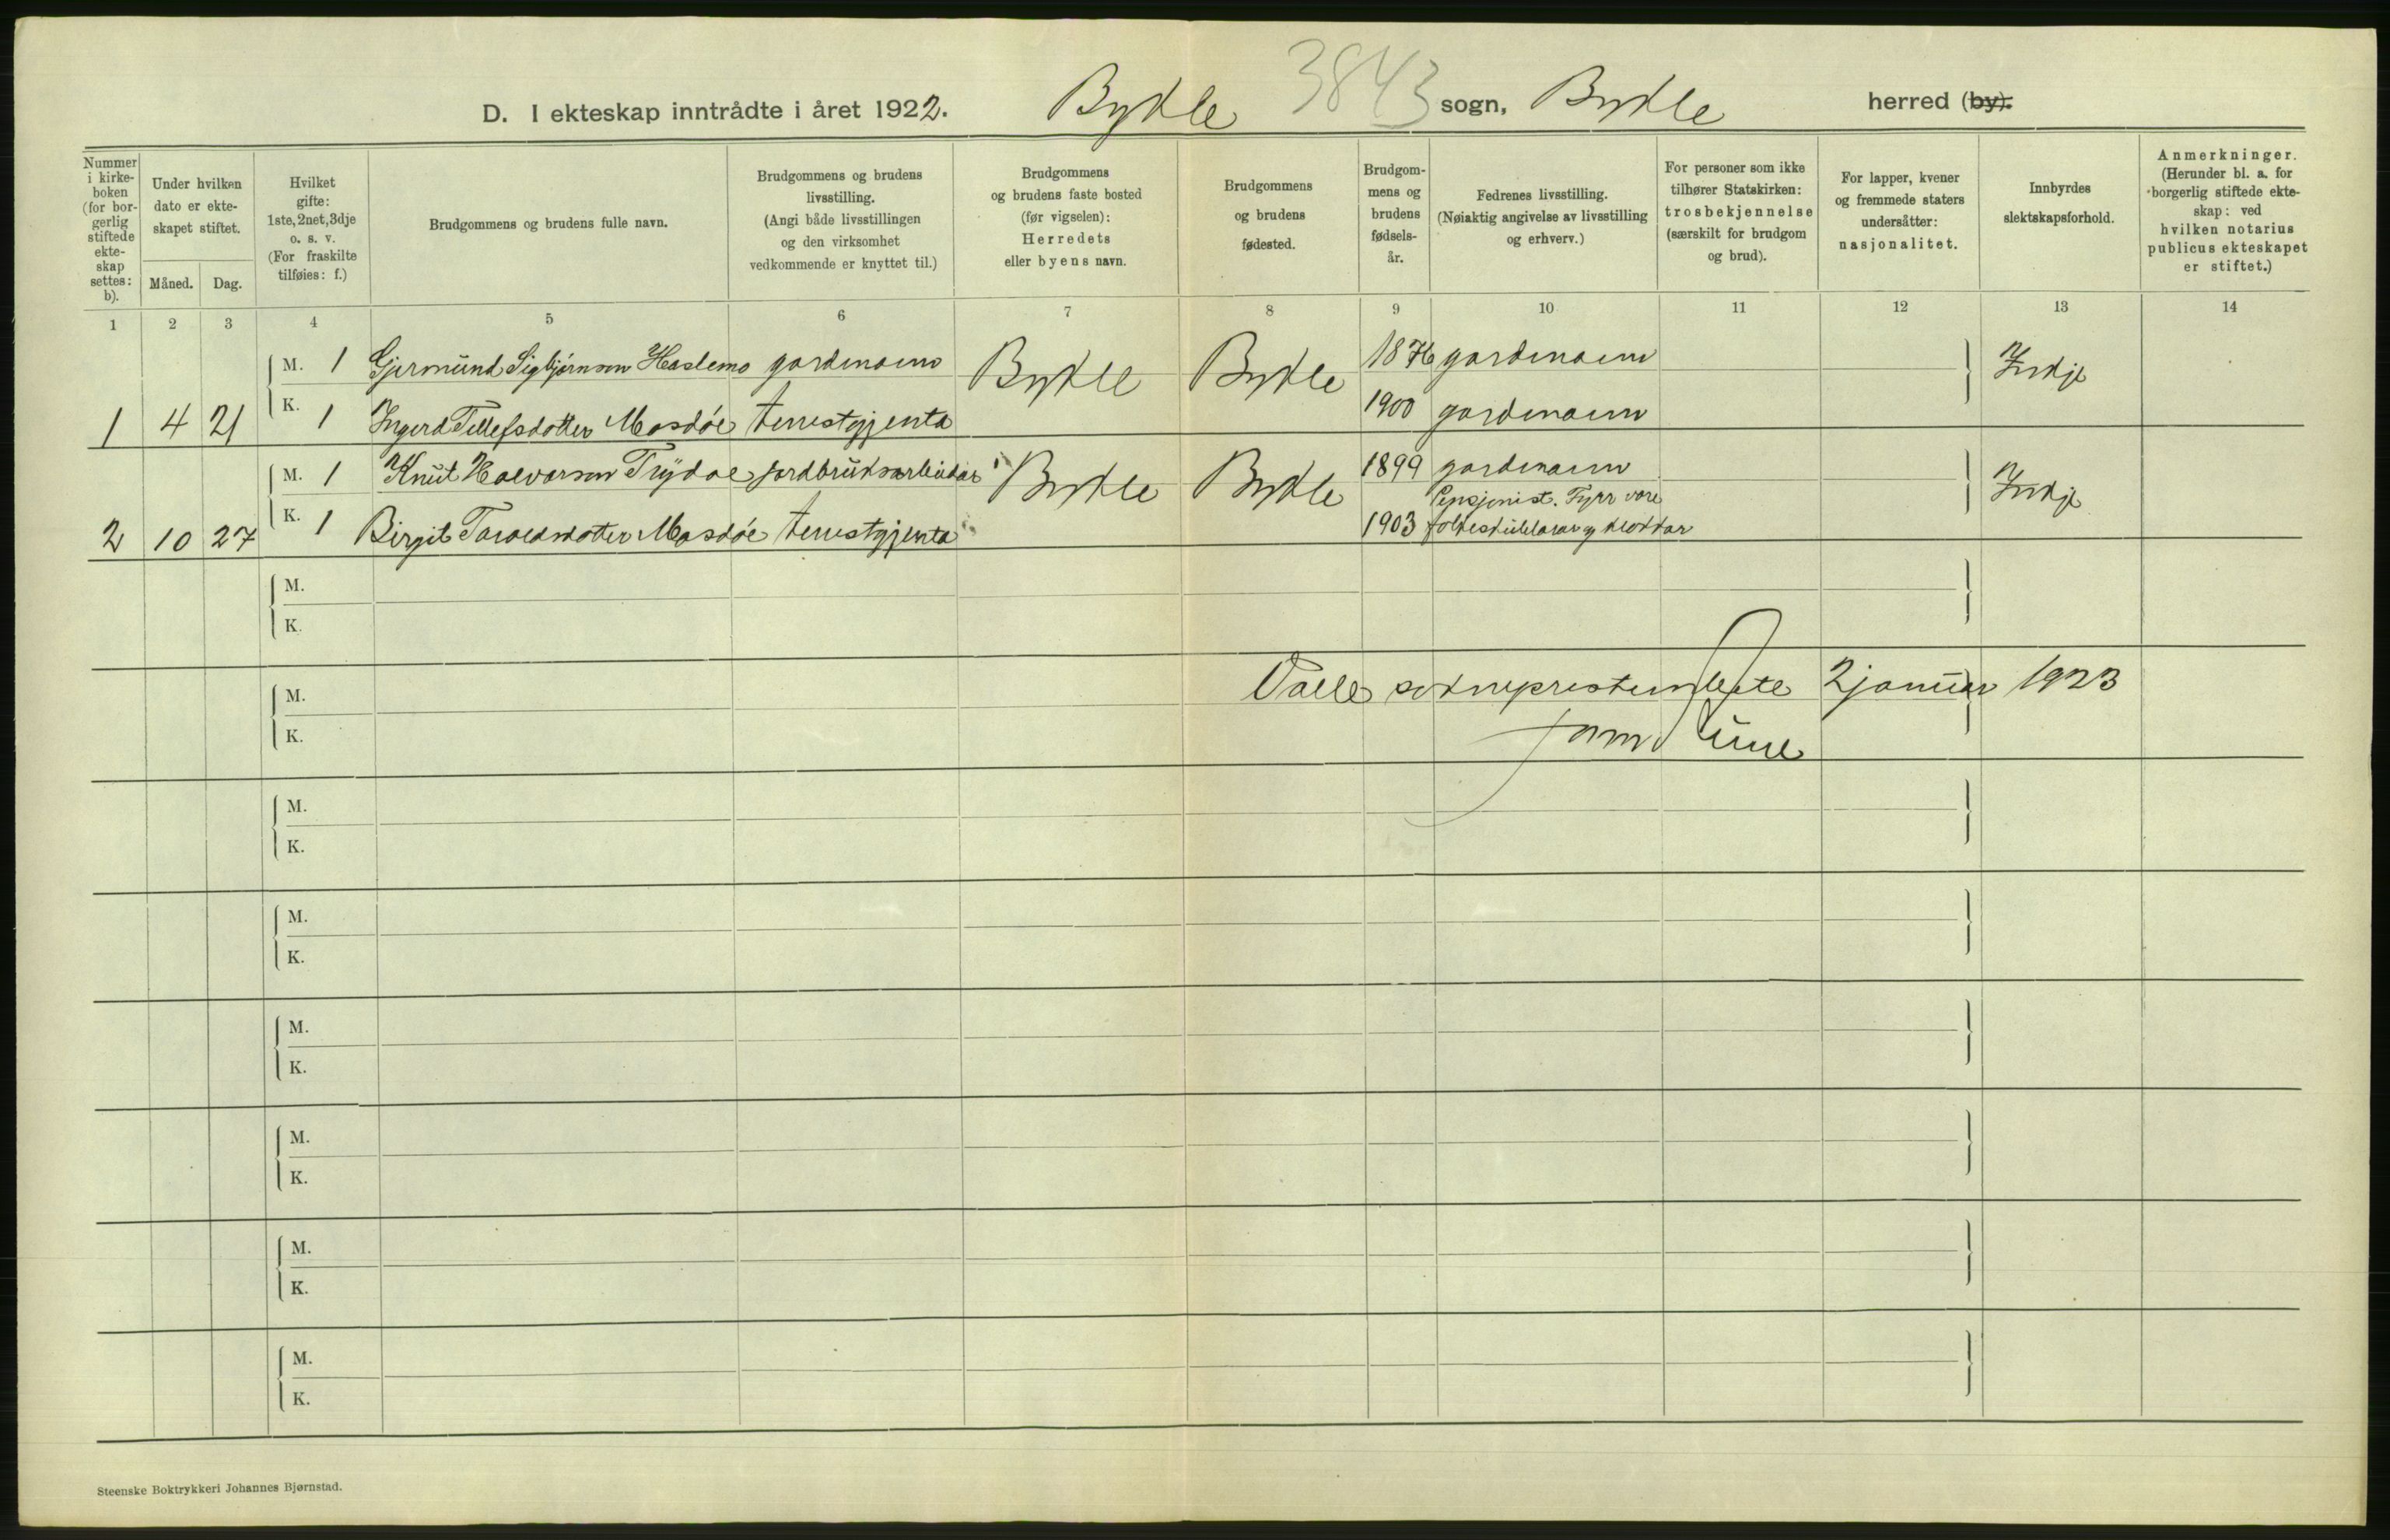 3843
D. I ekteskap inntrådte i året 1922. Bykle sogn, Bykle herred (by).
Nummer i kirke- boken (for bor- gerlig stiftede ekte- skap settes: b).
Under hvilken dato er ekte- skapet stiftet.
Måned. Dag.
Hvilket gifte: 1ste, 2net, 3dje o. s. v. (For fraskilte tilføies: f.)
Brudgommens og brudens fulle navn.
Brudgommens og brudens livsstilling. (Angi både livsstillingen og den virksomhet vedkommende er knyttet til.)
Brudgommens og brudens faste bosted (før vigselen): Herredets eller byens navn.
Brudgommens og brudens fødested.
Brudgom- mens og brudens fødsels- år.
Fedrenes livsstilling. (Nøiaktig angivelse av livsstilling og erhverv.)
For personer som ikke tilhører Statskirken: trosbekjennelse (særskilt for brudgom og brud).
For lapper, kvener og fremmede staters undersåtter: nasjonalitet.
Innbyrdes slektskapsforhold.
Anmerkninger. (Herunder bl. a. for borgerlig stiftede ekte- skap: ved hvilken notarius publicus ekteskapet er stiftet.)
1 2 3 4 5 6 7 8 9 10 11 12 13 14
M. 1 Gjermund Sigbjørnson Haslemo gardmann Bykle Bykle 1876 gardmann Inkje
1 4 21 K. 1 Ingerd Tellefsdotter Mosdøl tenestgjenta 1900 gardmann
M. 1 Knut Halvorson Trydal jordbruksarbeidar Bykle Bykle 1899 gardmann Inkje
Pensjonist. Fyrr vore
2 10 27 K. 1 Birgit Taraldsdotter Mosdøl tenestgjenta 1903 folkeskulelærar og klokkar
M.
K.
Valle sokneprestembete 2 januar 1923
M.
K.
M.
K.
M.
K.
M.
K.
M.
K.
M.
K.
M.
K.
Steenske Boktrykkeri Johannes Bjørnstad.